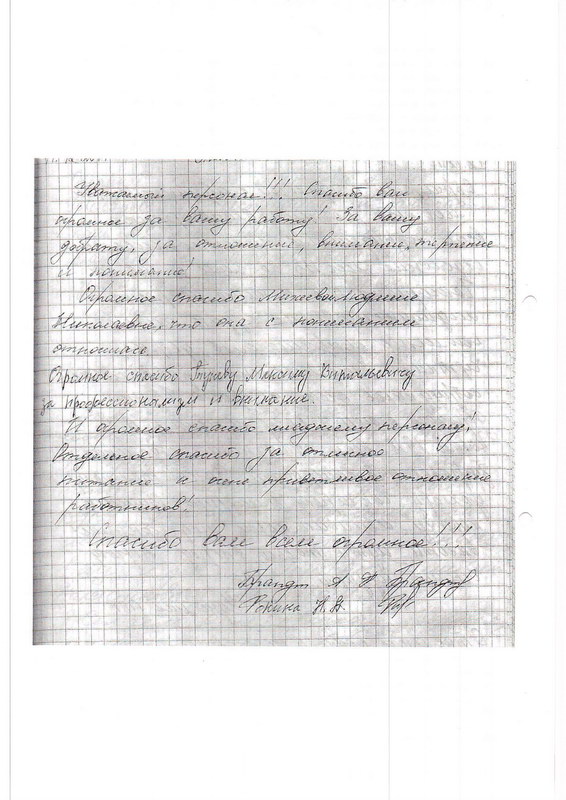 Уважаемый персонал!!! Спасибо вам
огромное за вашу работу! За вашу
доброту, за отношение, внимание, терпение
и понимание!
Огромное спасибо Михеевой Людмиле
Николаевне, что она с пониманием
отнеслась.
Огромное спасибо Максиму Витальевичу
за профессионализм и внимание.
И огромное спасибо младшему персоналу!
Отдельное спасибо за отличное
питание и очень приветливое отношение
работников!
Спасибо вам всем огромное!!!
Брандт А
Н.Н.